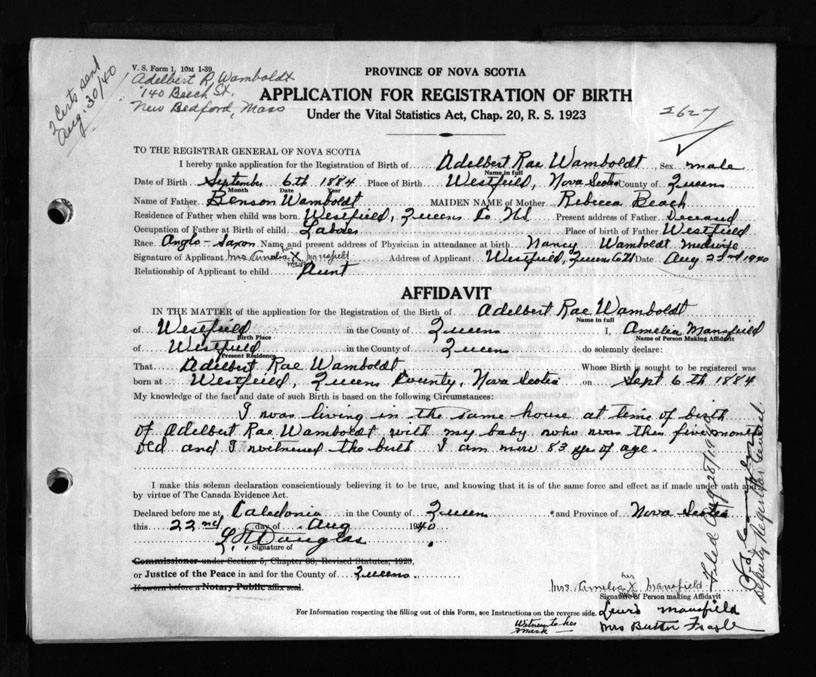 V. S. Form 1. 10M 1-39.
Adelbert R. Wamboldt
140 Beech St.
New Bedford, Mass
2 Certs sent
Aug. 30/40
PROVINCE OF NOVA SCOTIA
APPLICATION FOR REGISTRATION OF BIRTH
Under the Vital Statistics Act, Chap. 20, R. S. 1923
2627
TO THE REGISTRAR GENERAL OF NOVA SCOTIA
I hereby make application for the Registration of Birth of Adelbert Rae Wamboldt Sex male
Name in full
Date of Birth September 6th 1884 Place of Birth Westfield, Nova Scotia County of Queens
Month Date Year
Name of Father Benson Wamboldt MAIDEN NAME of Mother Rebecca Beach
Residence of Father when child was born Westfield, Queens Co NS Present address of Father Deceased
Occupation of Father at Birth of Child Labor Place of birth of Father Westfield
Race Anglo-Saxon Name and present address of Physician in attendance at birth Nancy Wamboldt Midwife
Signature of Applicant Mrs Amelia X Mansfield Address of Applicant Westfield, Queens Date Aug 22nd 1940
Relationship of Applicant to child Aunt
AFFIDAVIT
IN THE MATTER of the application for the Registration of the Birth of Adelbert Rae Wamboldt
Name in full
of Westfield in the County of Queens I, Amelia Mansfield
Birth Place Name of Person Making Affidavit
of Westfield in the County of Queens do solemnly declare:
Present Residence
That Adelbert Rae Wamboldt Whose Birth is sought to be registered was
born at Westfield, Queens County, Nova Scotia on Sept 6th 1884
My knowledge of the fact and date of such Birth is based on the following Circumstances:
I was living in the same house at time of birth
of Adelbert Rae Wamboldt with my baby who was then five months
old and I witnessed the birth I am now 83 yrs of age.
I make this solemn declaration conscientiously believing it to be true, and knowing that it is of the same force and effect as if made under oath and
by virtue of The Canada Evidence Act.
Declared before me at Caledonia in the County of Queens and Province of Nova Scotia
this 22nd day of Aug 1940
Douglas
Signature of
Commissioner under Section 5, Chapter 38, Revised Statutes, 1923,
or Justice of the Peace in and for the County of Queens
If sworn before a Notary Public affix seal.
her
Mrs. Amelia X Mansfield
mark
Signature of Person making Affidavit
For Information respecting the filling out of this Form, see Instructions on the reverse side.
Witness to her
mark
Lewis Mansfield
Mrs
Filed Aug 28/1940
Deputy Registrar General